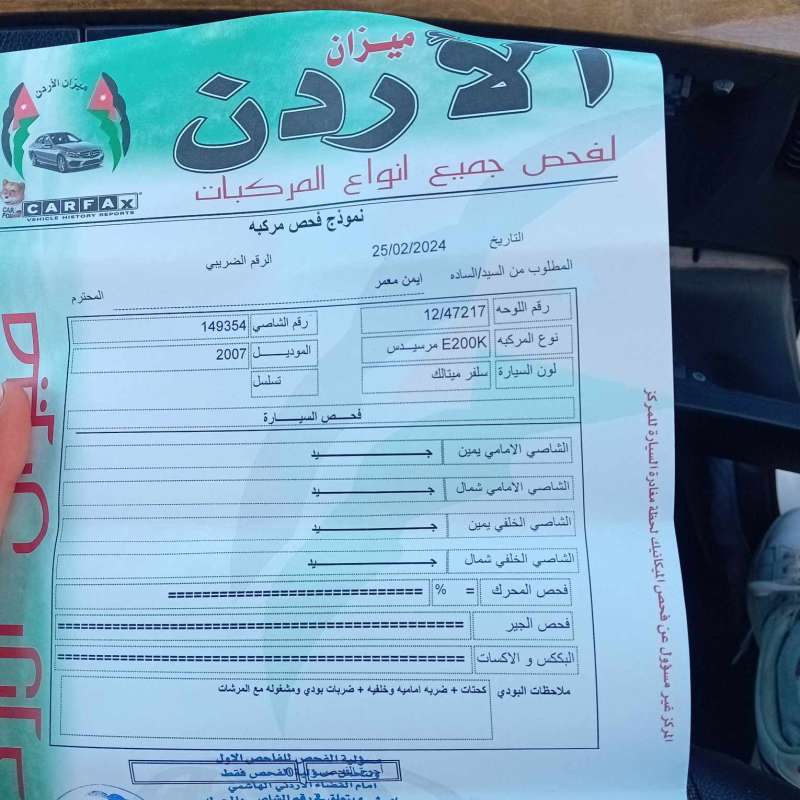 ميزان
الأردن
لفحص جميع انواع المركبات
ميزان الأردن
CAR FOX
CARFAX
VEHICLE HISTORY REPORTS
نموذج فحص مركبه
التاريخ 25/02/2024 الرقم الضريبي
المطلوب من السيد/الساده ايمن معمر المحترم
رقم اللوحه 12/47217 رقم الشاصي 149354
نوع المركبه E200K مرسيدس الموديل 2007
لون السيارة سلفر ميتالك تسلسل
فحص السيارة
الشاصي الامامي يمين جيد
الشاصي الامامي شمال جيد
الشاصي الخلفي يمين جيد
الشاصي الخلفي شمال جيد
فحص المحرك = % ============================
فحص الجير =============================================
البككس و الاكسات =============================================
ملاحظات البودي كحتات + ضربه اماميه وخلفيه + ضربات بودي ومشغوله مع المرشات
المركز غير مسؤول عن فحص الميكانيك لحظة مغادرة السيارة للمركز
ميزان
مسؤولية الفحص للفاحص الاول
الفحص فقط
امام القضاء الأردني الهاشمي